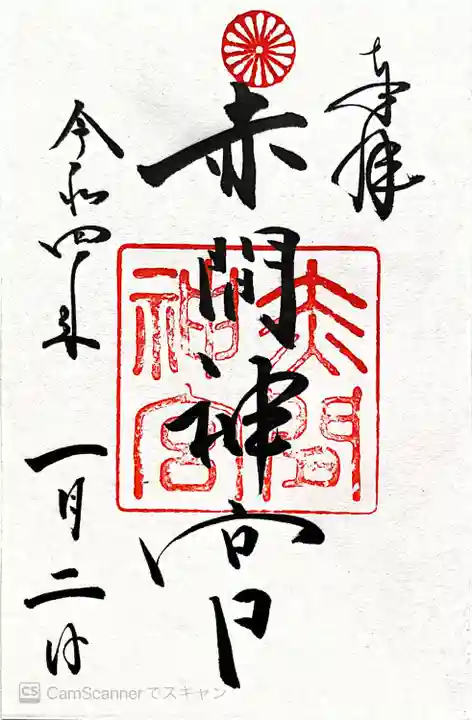 奉拝
赤間神宮
赤間神宮
令和四年 一月二日
CS CamScannerでスキャン